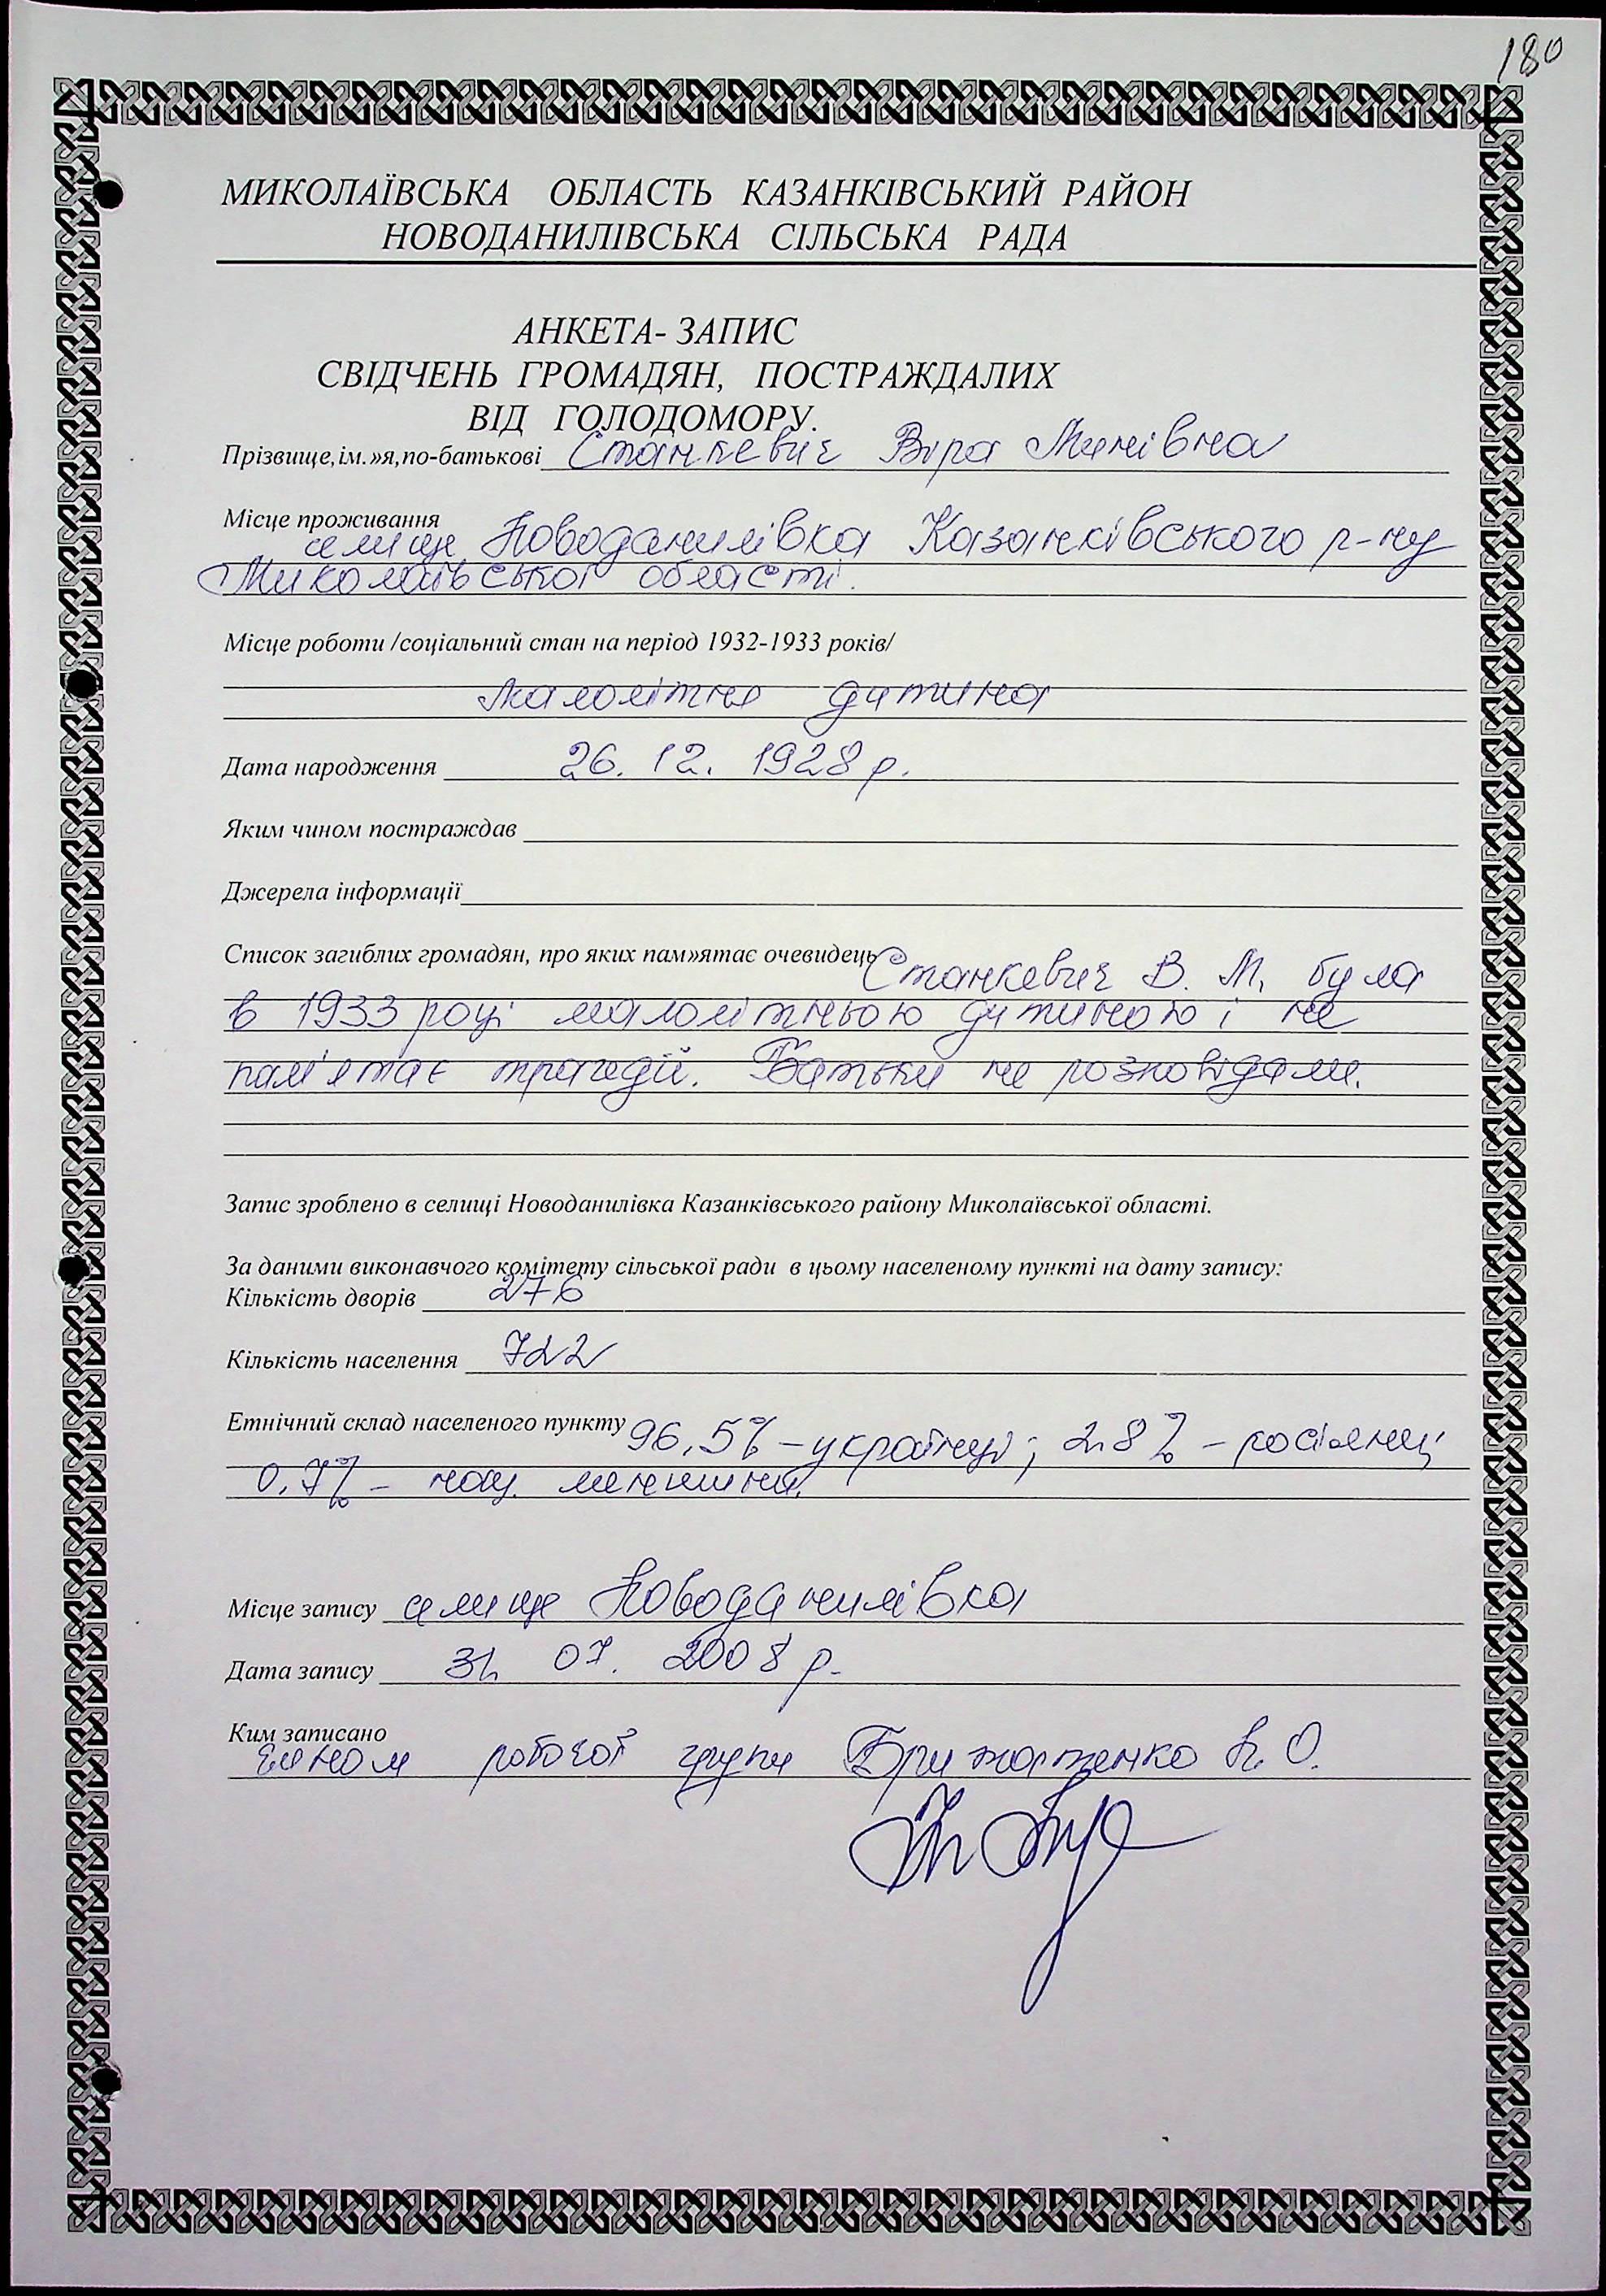 180
МИКОЛАЇВСЬКА ОБЛАСТЬ КАЗАНКІВСЬКИЙ РАЙОН
НОВОДАНИЛІВСЬКА СІЛЬСЬКА РАДА
АНКЕТА- ЗАПИС
СВІДЧЕНЬ ГРОМАДЯН, ПОСТРАЖДАЛИХ
ВІД ГОЛОДОМОРУ.
Прізвище,ім.»я,по-батькові Станкевич Віра Минівна
Місце проживання
селище Новоданилівка Казанківського р-ну
Миколаївської області.
Місце роботи /соціальний стан на період 1932-1933 років/
малолітня дитина
Дата народження 26. 12. 1928 р.
Яким чином постраждав
Джерела інформації
Список загиблих громадян, про яких пам»ятає очевидець Станкевич В. М. була
в 1933 році малолітньою дитиною і не
пам'ятає трагедії. Батьки не розповідали.
Запис зроблено в селищі Новоданилівка Казанківського району Миколаївської області.
За даними виконавчого комітету сільської ради в цьому населеному пункті на дату запису:
Кількість дворів 276
Кількість населення 722
Етнічний склад населеного пункту 96,5% – українці; 2.8% – росіяни;
0,7% – нац. меншини.
Місце запису селище Новоданилівка
Дата запису 31. 07. 2008 р.
Ким записано
членом робочої групи О.